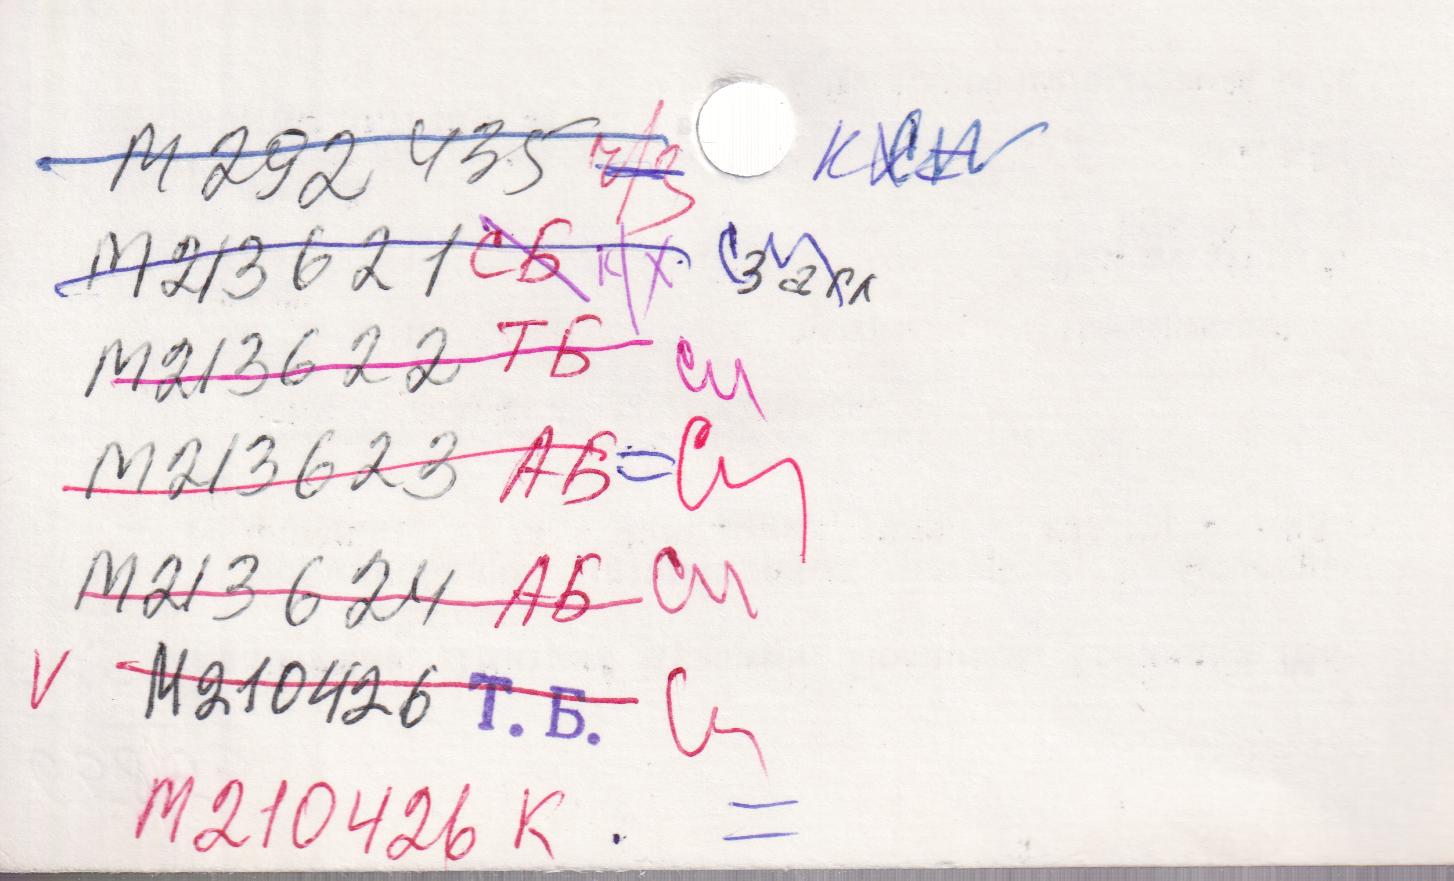 М292435 ч/з
М213621 СБ к/х
М213622 ТБ си
М213623 АБ = Си
М213624 АБ си
V М210426 Т. Б. Си
М210426 К . =